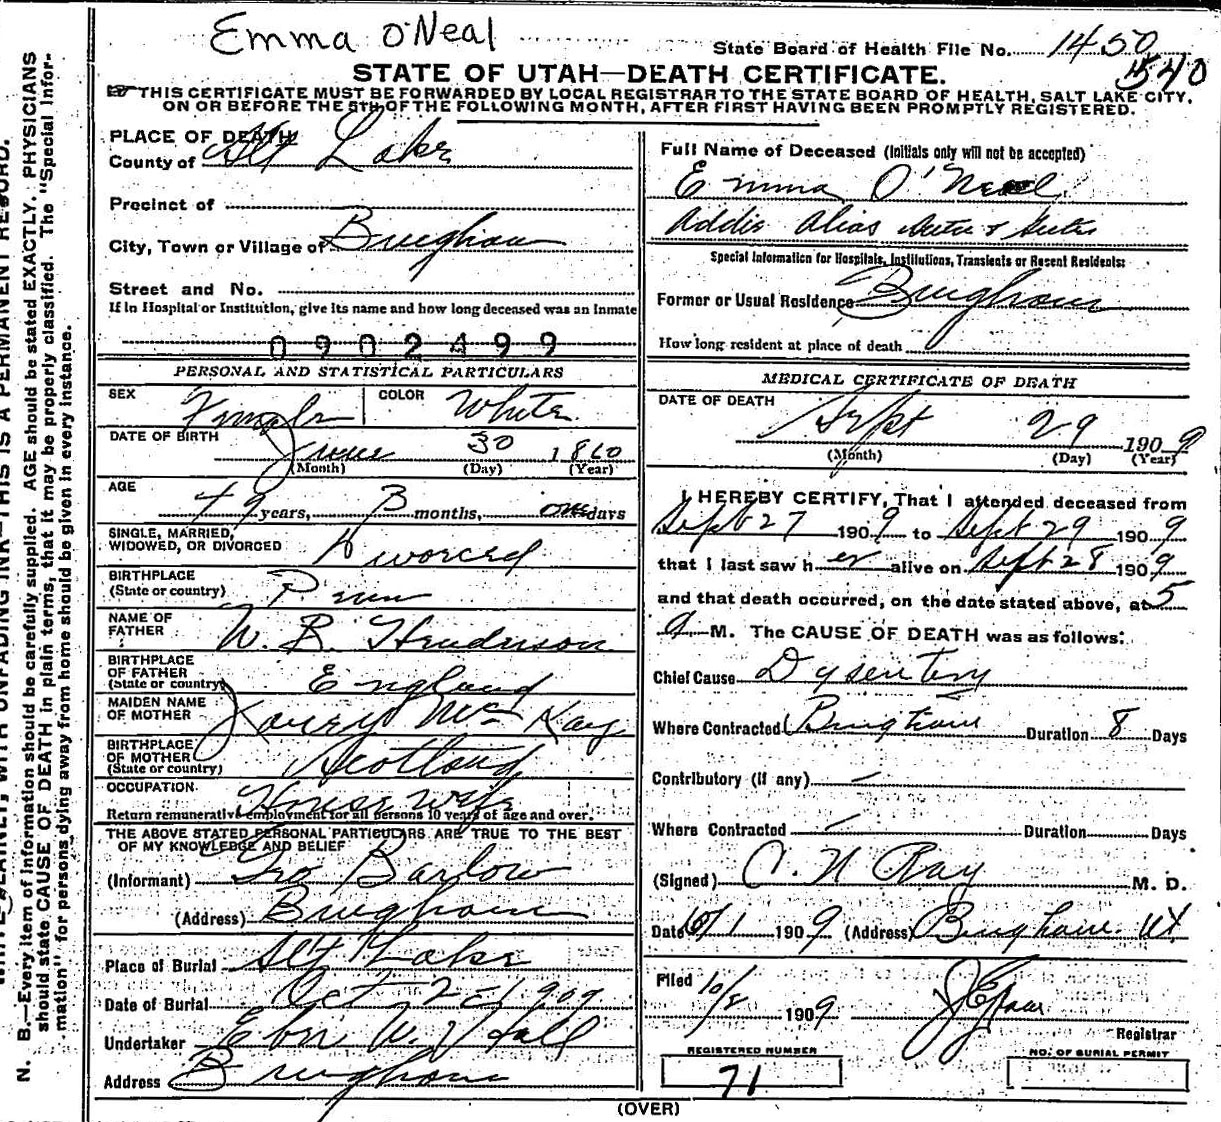 Emma O'Neal
State Board of Health File No. 1450
1540
STATE OF UTAH—DEATH CERTIFICATE.
THIS CERTIFICATE MUST BE FORWARDED BY LOCAL REGISTRAR TO THE STATE BOARD OF HEALTH, SALT LAKE CITY,
ON OR BEFORE THE 5TH OF THE FOLLOWING MONTH, AFTER FIRST HAVING BEEN PROMPTLY REGISTERED.
PLACE OF DEATH
County of Salt Lake
Precinct of
City, Town or Village of Bingham
Street and No.
If in Hospital or Institution, give its name and how long deceased was an Inmate
0902499
PERSONAL AND STATISTICAL PARTICULARS
SEX Female COLOR White
DATE OF BIRTH June 30 1860
(Month) (Day) (Year)
AGE
49 years, 3 months, one days
SINGLE, MARRIED,
WIDOWED, OR DIVORCED Divorced
BIRTHPLACE
(State or country) Penn
NAME OF
FATHER W. B. Henderson
BIRTHPLACE
OF FATHER
(State or country) England
MAIDEN NAME
OF MOTHER McKay
BIRTHPLACE
OF MOTHER
(State or country) Scotland
OCCUPATION Housewife
Return remunerative employment for all persons 10 years of age and over.
THE ABOVE STATED PERSONAL PARTICULARS ARE TRUE TO THE BEST
OF MY KNOWLEDGE AND BELIEF
(Informant) Geo Barlow
(Address) Bingham
Place of Burial Salt Lake
Date of Burial Oct 2 1909
Undertaker Eber W. Hall
Address Bingham
Full Name of Deceased (Initials only will not be accepted)
Emma O'Neal
Addie Alias
Special Information for Hospitals, Institutions, Transients or Recent Residents:
Former or Usual Residence Bingham
How long resident at place of death
MEDICAL CERTIFICATE OF DEATH
DATE OF DEATH
Sept 29 1909
(Month) (Day) (Year)
I HEREBY CERTIFY, That I attended deceased from
Sept 27 1909 to Sept 29 1909
that I last saw her alive on Sept 28 1909
and that death occurred, on the date stated above, at 5
a M. The CAUSE OF DEATH was as follows:
Chief Cause Dysentery
Where Contracted Bingham Duration 8 Days
Contributory (if any) —
Where Contracted — Duration Days
(Signed) C. N. Ray M. D.
Date 10/1 1909 (Address) Bingham Ut
Filed 10/2 1909
Registrar
REGISTERED NUMBER
71
NO. OF BURIAL PERMIT
(OVER)
N. B.—Every item of information should be carefully supplied. AGE should be stated EXACTLY. PHYSICIANS
should state CAUSE OF DEATH in plain terms, that it may be properly classified. The "Special Infor-
mation" for persons dying away from home should be given in every instance.